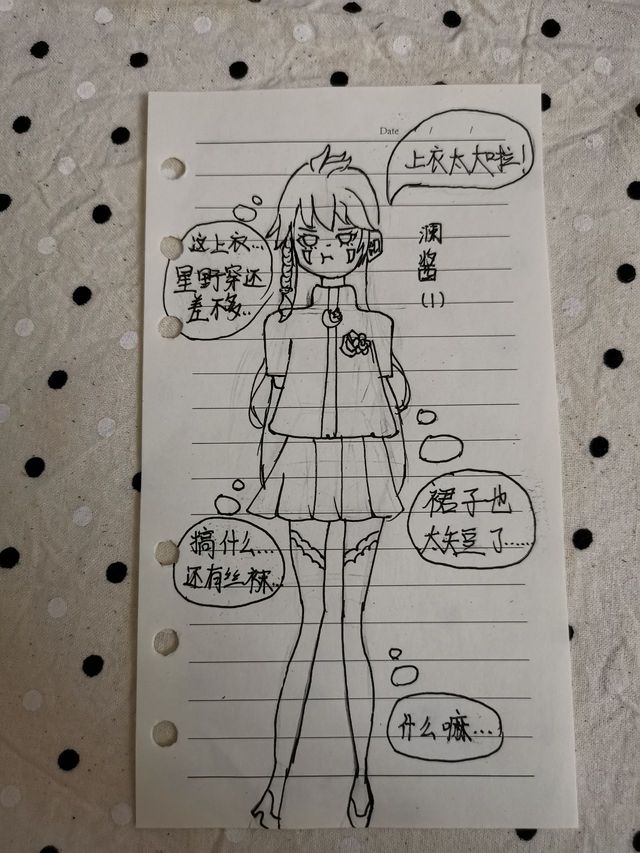 Date / /
上衣太大啦!
这上衣...
星野穿还
差不多..
澜
酱
(1)
裙子也
太短了......
搞什么...
还有丝袜...
什么嘛...